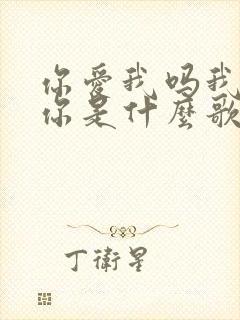 你愛我吗我
你是什麼歌
丁衛星